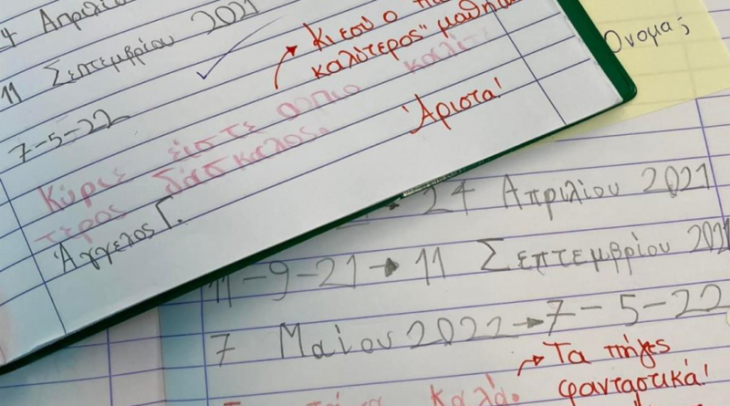 Απριλίου
11 Σεπτεμβρίου 2021
7-5-22
Κι εσύ ο πιο
καλύτερος μαθη
Κύριε είστε ο πιο καλύ
τερος δάσκαλος.
Άριστα!
Άγγελος Γ.
Όνομα;
24 Απριλίου 2021
11-9-21→11 Σεπτεμβρίου 2021
7 Μαίου 2022→7-5-22
→ Τα πήγες
καλά.
φανταστικά!